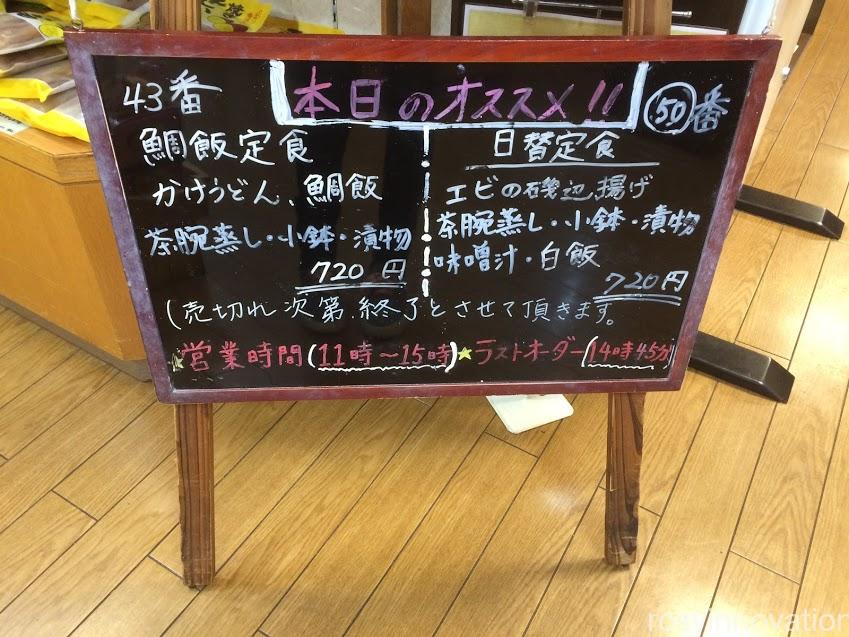 本日のオススメ!!
43番
鯛飯定食
かけうどん、鯛飯
茶腕蒸し・小鉢・漬物
720円
50番
日替定食
エビの磯辺揚げ
茶腕蒸し・小鉢・漬物
味噌汁・白飯
720円
(売切れ次第、終了とさせて頂きます。
★営業時間(11時～15時)★ラストオーダー(14時45分)